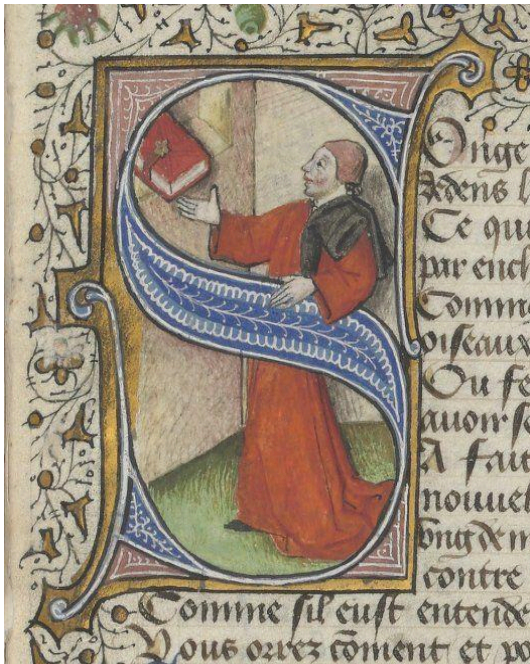 SOnge
dedens l
Ce qui
par encl
Comme
oiseaux
Ou fe
auoir se
A fait
nouuel
vng de m
contre
Comme sil eust entende
Vous orrez cõment et po